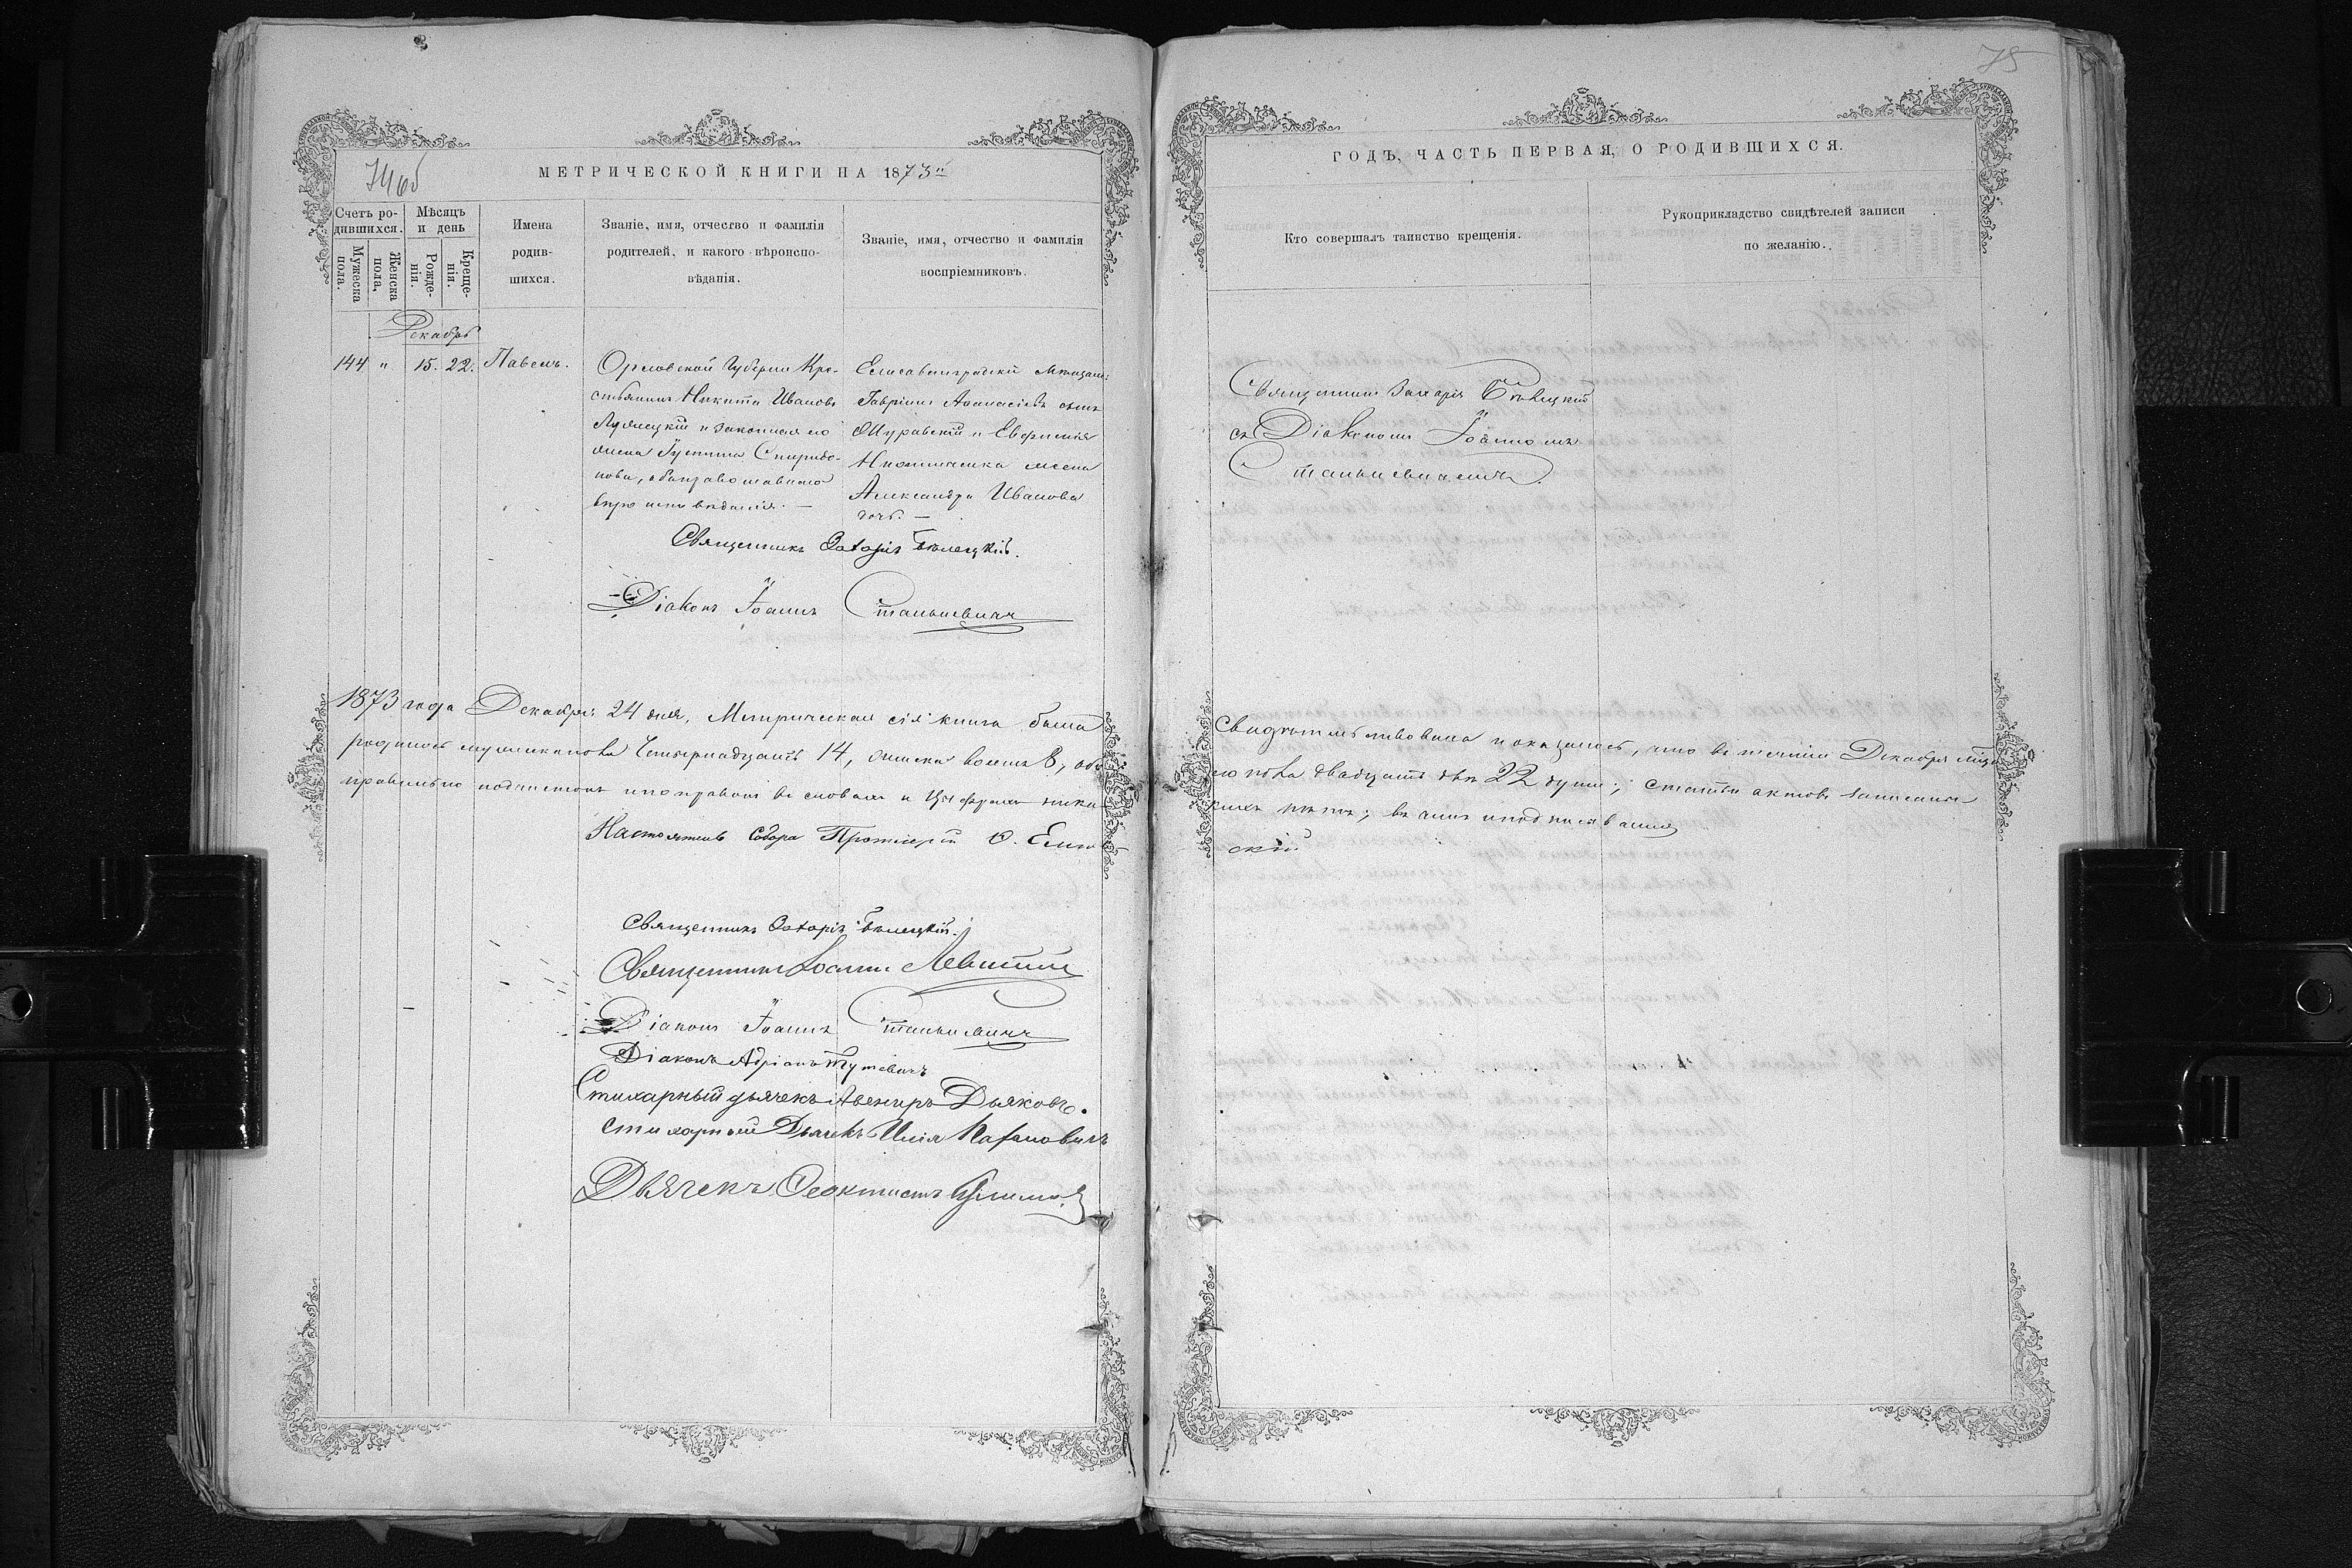 74об
МЕТРИЧЕСКОЙ КНИГИ НА 1873й
Счетъ ро-
дившихся.
Мужеска
пола.
Женска
пола.
Мѣсяцъ
и день
Рожде-
нія.
Креще-
нія.
Имена
родив-
шихся.
Званіе, имя, отчество и фамилія
родителей, и какого вѣроиспо-
вѣданія.
Званіе, имя, отчество и фамилія
воспріемниковъ.
Декабрь
144 " 15. 22. Павелъ.
Орловской Губерніи Кре-
стьянинъ Никита Ивановъ
и законная его
жена Іустина Спиридо-
нова, оба православнаго
вѣроисповѣданія. —
Елисаветградскій Мѣщан:
Гавріилъ Аѳанасіевъ сынъ
Журавскій и Евфимія
жена
Александра Иванова
дочь. —
Священникъ Захарія Бѣлецкій.
Діаконъ Іоаннъ Станкевичъ
1873 года Декабря 24 дня, Метрическая сія книга была
родилось мужеска пола Четырнадцать 14, женска восемь 8, обо
правильно подчистокъ и поправокъ въ словахъ и цыфрахъ ника
Настоятель Собора Протоіерей
Священникъ Захарія Бѣлецкій.
Священникъ Іоаннъ Левитскій
Діаконъ Іоаннъ Станкевичъ
Діаконъ Адріанъ
Стихарный дьячекъ Авениръ Дьяковъ.
Стихарный Дьячекъ Илія
Дьячекъ Ѳеоктистъ
75
ГОДЪ, ЧАСТЬ ПЕРВАЯ, О РОДИВШИХСЯ.
Кто совершалъ таинство крещенія.
Рукоприкладство свидѣтелей записи
по желанію.
Священникъ Захарія Бѣлецкій
съ Діакономъ Іоанномъ
Станкевичемъ.
Свидѣтельствована и оказалось, что въ теченіи Декабря мѣсяца
его пола двадцать двѣ 22 души; статьи актовъ записаны
кихъ нѣтъ; въ чемъ и подписываемся
скій